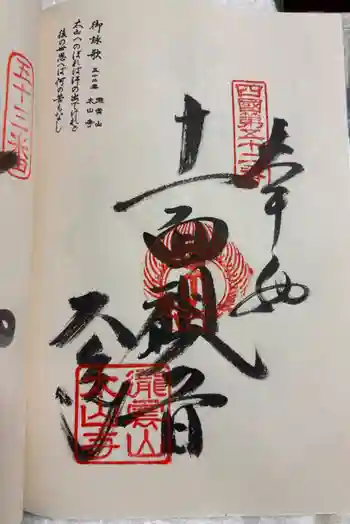 御詠歌 五十二番 瀧雲山 太山寺
太山へのぼれば汗の出でけれど
後の世思へば何の苦もなし
四國第五十二番
奉納
十一面観音
太山寺
瀧雲山
太山寺
五十三番